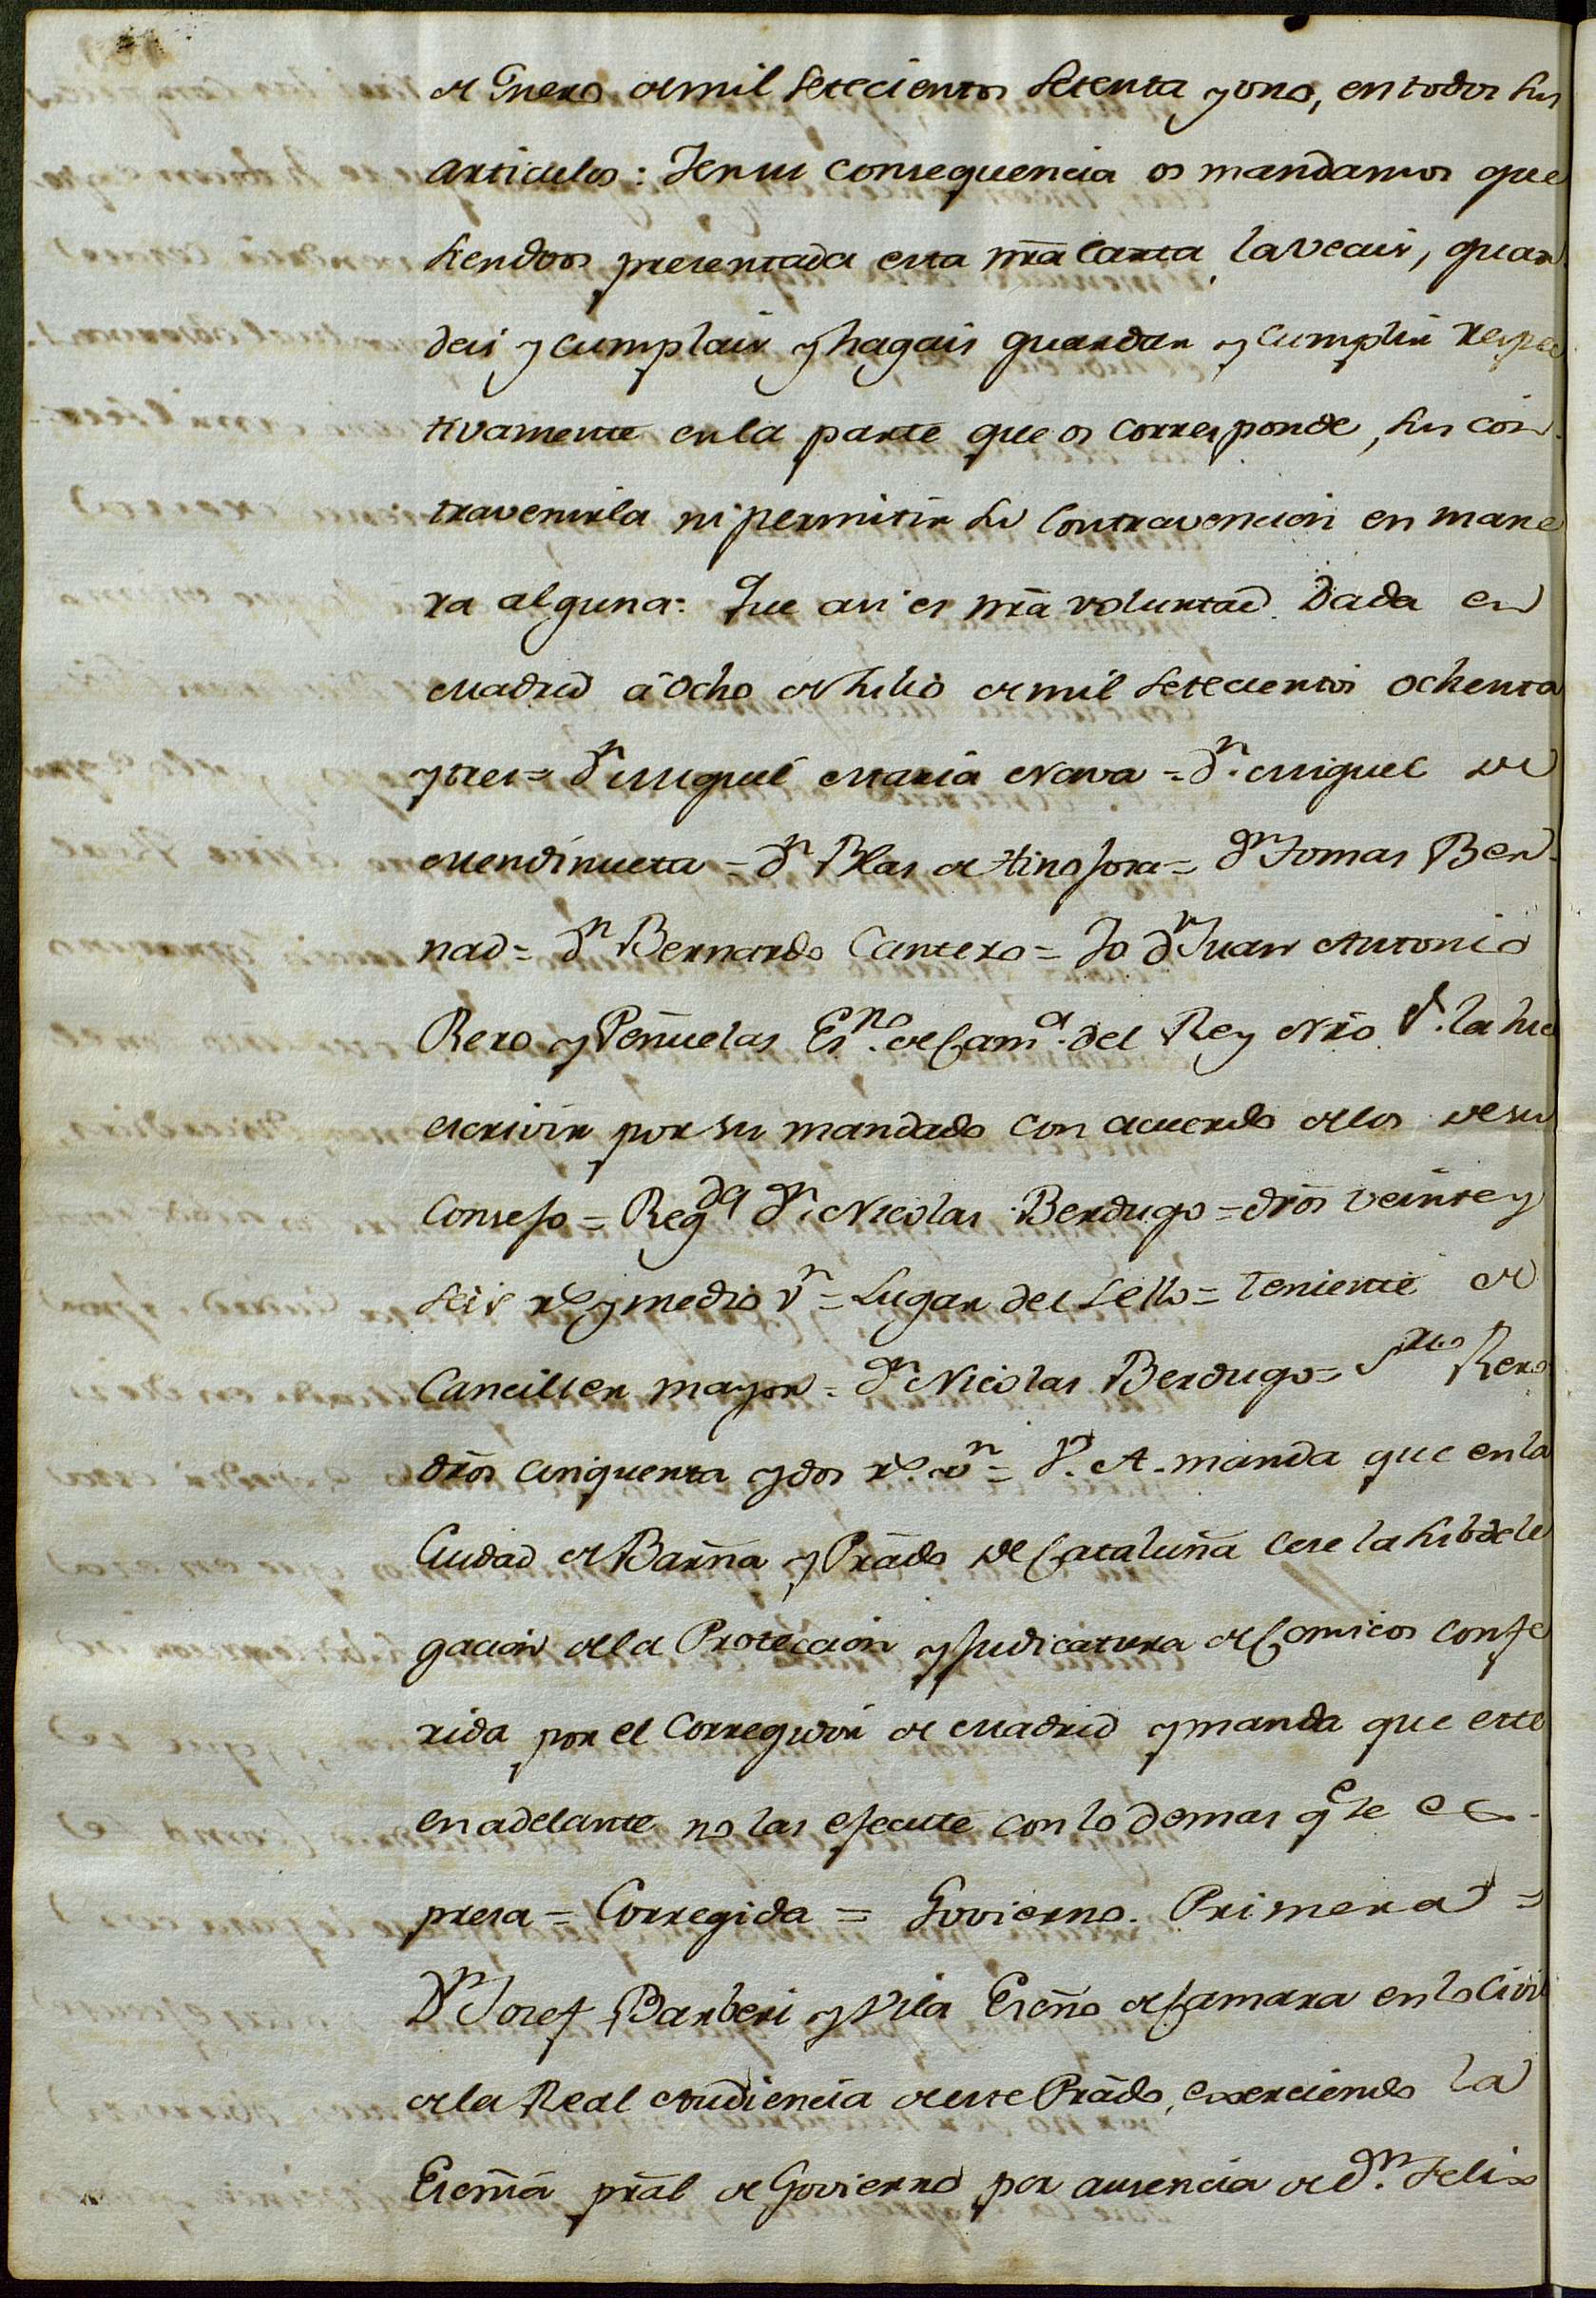 de Enero de mil setecientos setenta y uno, en todos sus
articulos: Y en su consequencia os mandamos que
siendoos presentada esta nrã Carta la veais, guar
deis y cumplais y hagais guardar y cumplir respec
tivamente en la parte que os corresponde, sin con
travenirla ni permitir su Contravencion en mane
ra alguna: Que asi es nrã voluntad. Dada en
Madrid a ocho de Julio de mil setecientos ochenta
y tres = Dn Miguel Maria Nava = Dn. Miguel de
Mendinueta = Dn Blas de Hinojosa = Dn Tomas Ber
nad = Dn Bernardo Cantero = Yo Dn Juan Antonio
Rero y Peñuelas Esno. de Cama. del Rey Nrõ Sr. la hice
escrivir por su mandado con acuerdo de los de su
Consejo = Regda Dn. Nicolas Berdugo = drõs veinte y
seis rs y medio vn = Lugar del Sello = Teniente de
Canciller mayor = Dn Nicolas Berdugo = Srio Rero
drõs cinquenta y dos rs. vn = V. A. manda que en la
Ciudad de Barñà y Prãdo de Cataluña cese la subdele
gacion de la Proteccion y Judicatura de Comicos confe
rida por el Corregidor de Madrid y manda que este
en adelante no las ejecute con lo demas qe se ex
presa = Corregida = Govierno. Primera =
Dn Josef Barberi y Vila Escño de Camara en lo Civil
de la Real Audiencia de este Prãdo, exerciendo la
Escrñia prãl de Govierno por ausencia de Dn. Felix